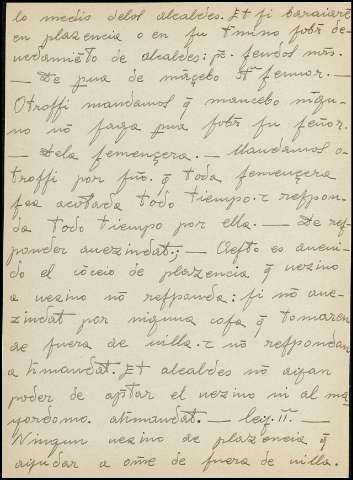 lo medio delos alcaldes. Et si baraiarē
en plazencia o en su tmino sobr̄ de-
uedamiēto de alcaldes: p̄. sendos mr̄s.
— De pua de māçebo a señnor. —
Otrossi mandamos q̄ mancebo nīgu-
no nō faga pua sobr̄ su señor.
— Dela femençera. — Mandamos o-
trossi por fuo. q̄ toda femençera
sea acotada todo tiempo. τ respon-
da todo tiempo por ella. — De res-
ponder auezindat; — Aesto es aueni-
do el cōceio de plazencia q̄ uezino
a uezino nō responda: si nō aue-
zindat por niguna cosa q̄ tomaren
de fuera de uilla. τ nō respondan
a hmandat. Et alcaldes nō ayan
poder de aptar el uezino ni al ma-
yordomo. ahmandat. — ley. II. —
Ningun uezino de plazencia q̄
aiudar a ome de fuera de uilla.